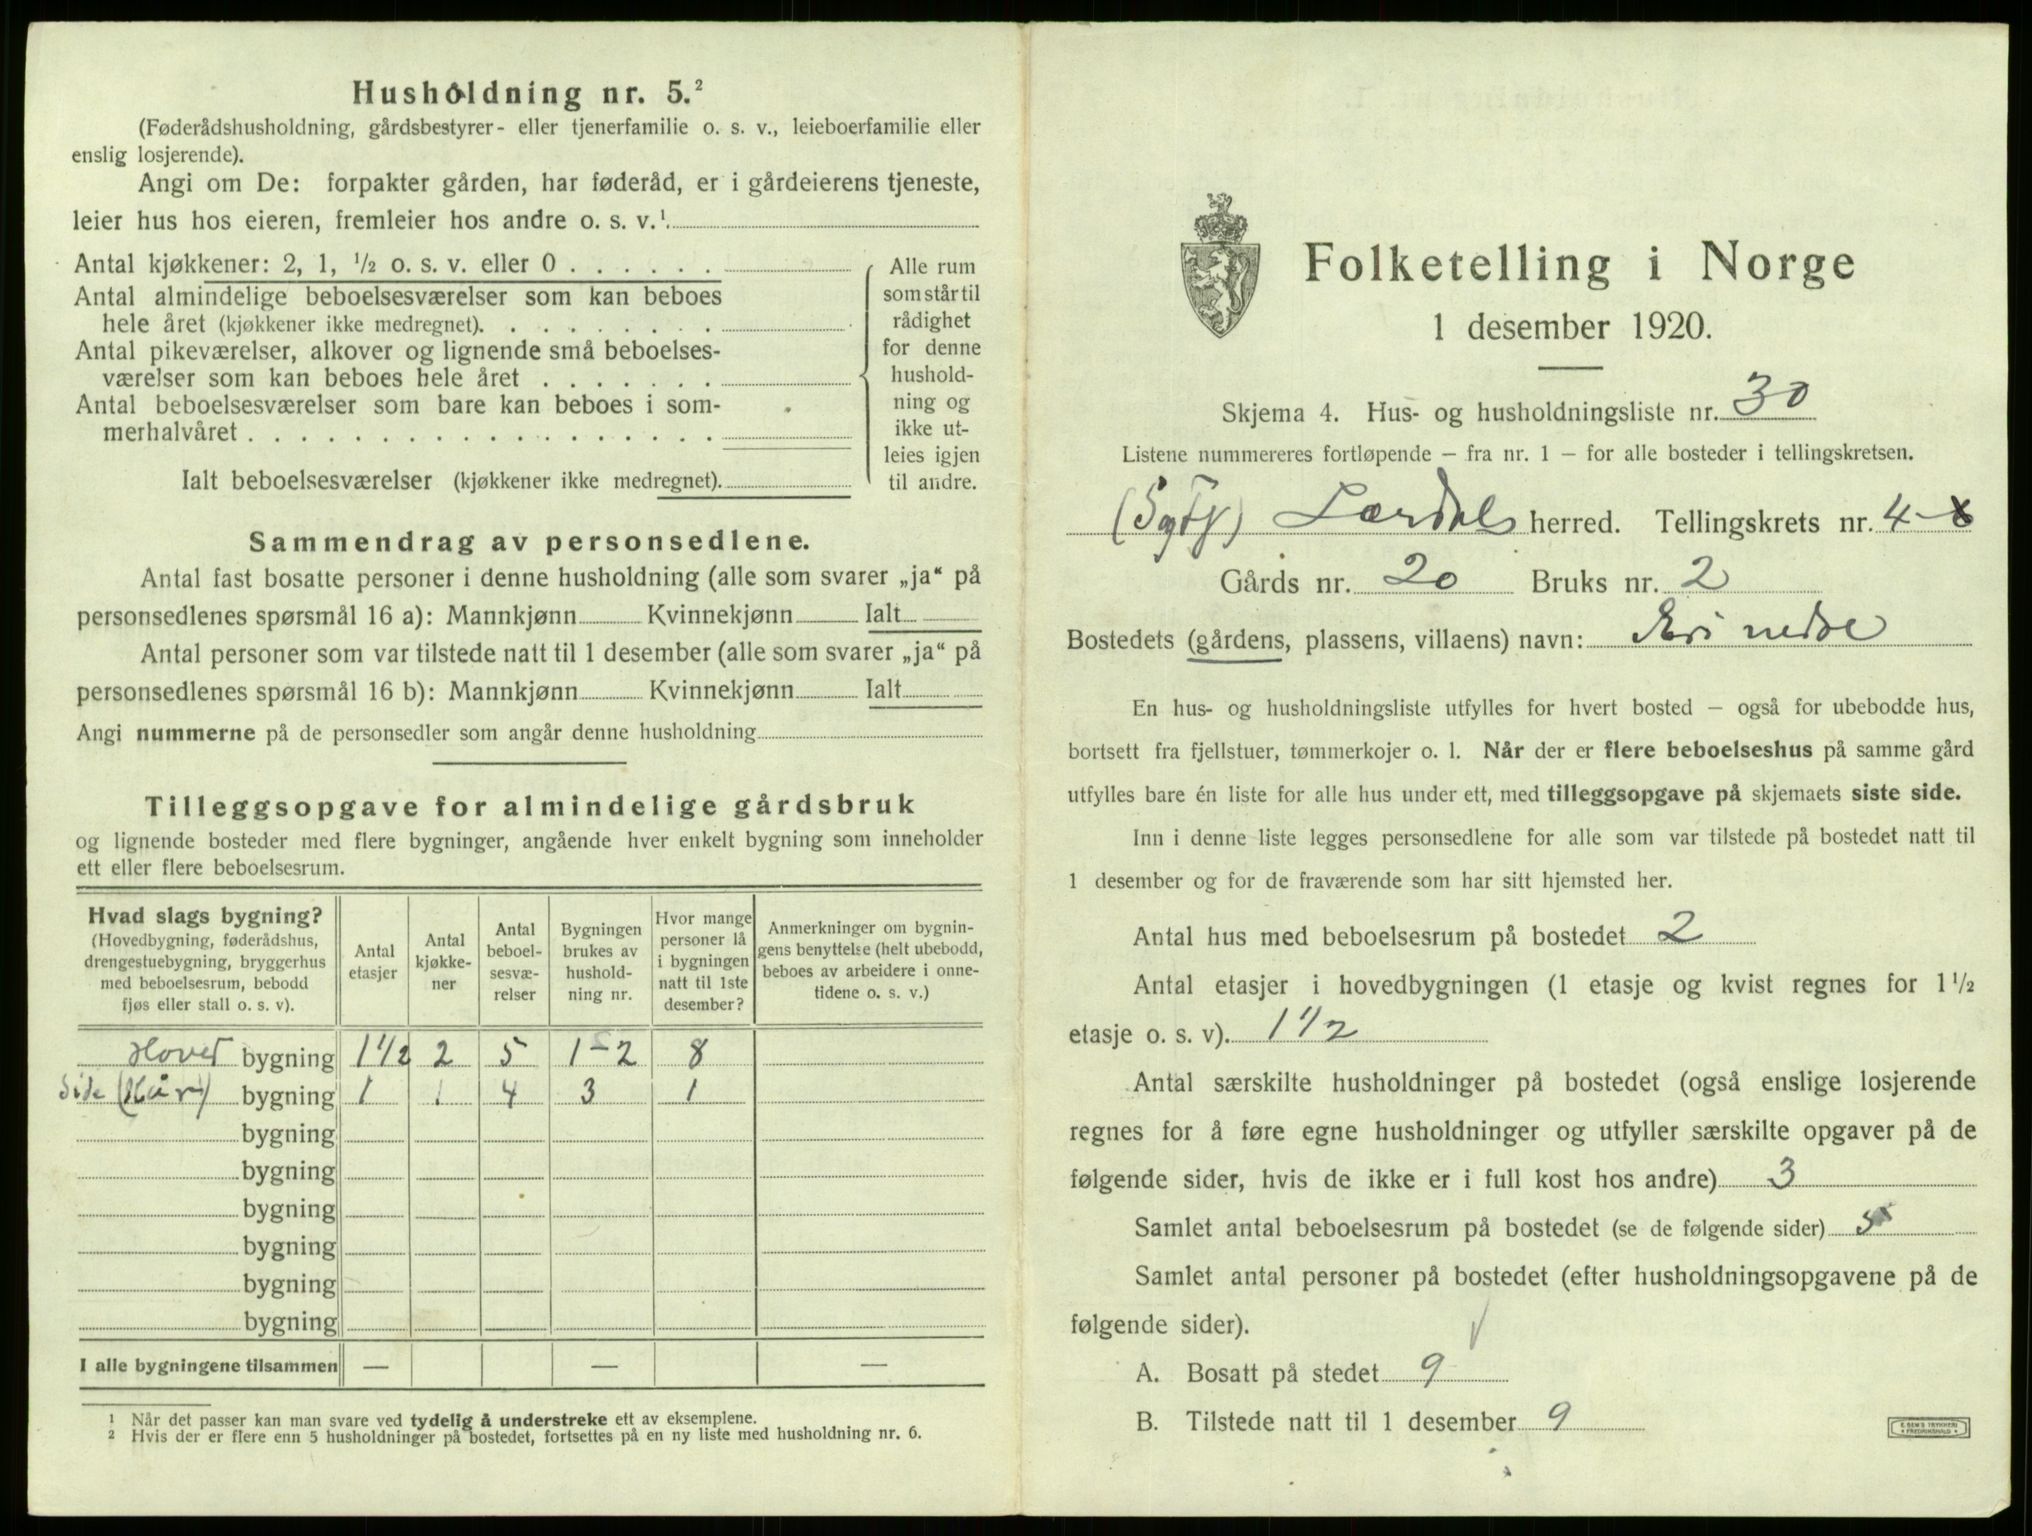 Husholdning nr. 5.²
(Føderådshusholdning, gårdsbestyrer- eller tjenerfamilie o. s. v., leieboerfamilie eller
enslig losjerende).
Angi om De: forpakter gården, har føderåd, er i gårdeierens tjeneste,
leier hus hos eieren, fremleier hos andre o. s. v.¹.
Antal kjøkkener: 2, 1, ½ o. s. v. eller 0 . . . . . .
Antal almindelige beboelsesværelser som kan beboes
hele året (kjøkkener ikke medregnet). . . . . . . . .
Antal pikeværelser, alkover og lignende små beboelses-
værelser som kan beboes hele året . . . . . . .
Antal beboelsesværelser som bare kan beboes i som-
merhalvåret . . . . . . . . . . . . . . . . . .
Ialt beboelsesværelser (kjøkkener ikke medregnet).
Alle rum
som står til
rådighet
for denne
hushold-
ning og
ikke ut-
leies igjen
til andre.
Sammendrag av personsedlene.
Antal fast bosatte personer i denne husholdning (alle som svarer „ja“ på
personsedlenes spørsmål 16 a): Mannkjønn Kvinnekjønn Ialt
Antal personer som var tilstede natt til 1 desember (alle som svarer „ja“ på
personsedlenes spørsmål 16 b): Mannkjønn Kvinnekjønn Ialt
Angi nummerne på de personsedler som angår denne husholdning
Tilleggsopgave for almindelige gårdsbruk
og lignende bosteder med flere bygninger, angående hver enkelt bygning som inneholder
ett eller flere beboelsesrum.
Hvad slags bygning?
(Hovedbygning, føderådshus,
drengestuebygning, bryggerhus
med beboelsesrum, bebodd
fjøs eller stall o. s. v).
Antal
etasjer
Antal
kjøkke-
ner
Antal
beboel-
sesvæ-
relser
Bygningen
brukes av
hushold-
ning nr.
Hvor mange
personer lå
i bygningen
natt til 1ste
desember?
Anmerkninger om bygnin-
gens benyttelse (helt ubebodd,
beboes av arbeidere i onne-
tidene o. s. v.)
Hoved bygning 1 1/2 2 5 1-2 8
Side (Kår) bygning 1 1 4 3 1
bygning
bygning
bygning
bygning
bygning
bygning
I alle bygningene tilsammen — — —
¹ Når det passer kan man svare ved tydelig å understreke ett av eksemplene.
² Hvis der er flere enn 5 husholdninger på bostedet, fortsettes på en ny liste med husholdning nr. 6.
Folketelling i Norge
1 desember 1920.
Skjema 4. Hus- og husholdningsliste nr. 30
Listene nummereres fortløpende – fra nr. 1 – for alle bosteder i tellingskretsen.
Lærdals herred. Tellingskrets nr. 4
Gårds nr. 20 Bruks nr. 2
Bostedets (gårdens, plassens, villaens) navn: Eri nedre
En hus- og husholdningsliste utfylles for hvert bosted – også for ubebodde hus,
bortsett fra fjellstuer, tømmerkojer o. l. Når der er flere beboelseshus på samme gård
utfylles bare én liste for alle hus under ett, med tilleggsopgave på skjemaets siste side.
Inn i denne liste legges personsedlene for alle som var tilstede på bostedet natt til
1 desember og for de fraværende som har sitt hjemsted her.
Antal hus med beboelsesrum på bostedet 2
Antal etasjer i hovedbygningen (1 etasje og kvist regnes for 1½
etasje o. s. v). 1 1/2
Antal særskilte husholdninger på bostedet (også enslige losjerende
regnes for å føre egne husholdninger og utfyller særskilte opgaver på de
følgende sider, hvis de ikke er i full kost hos andre) 3
Samlet antal beboelsesrum på bostedet (se de følgende sider) 5
Samlet antal personer på bostedet (efter husholdningsopgavene på de
følgende sider).
A. Bosatt på stedet 9
B. Tilstede natt til 1 desember 9
E. SEM'S TRYKKERI
* FREDRIKSHALD *